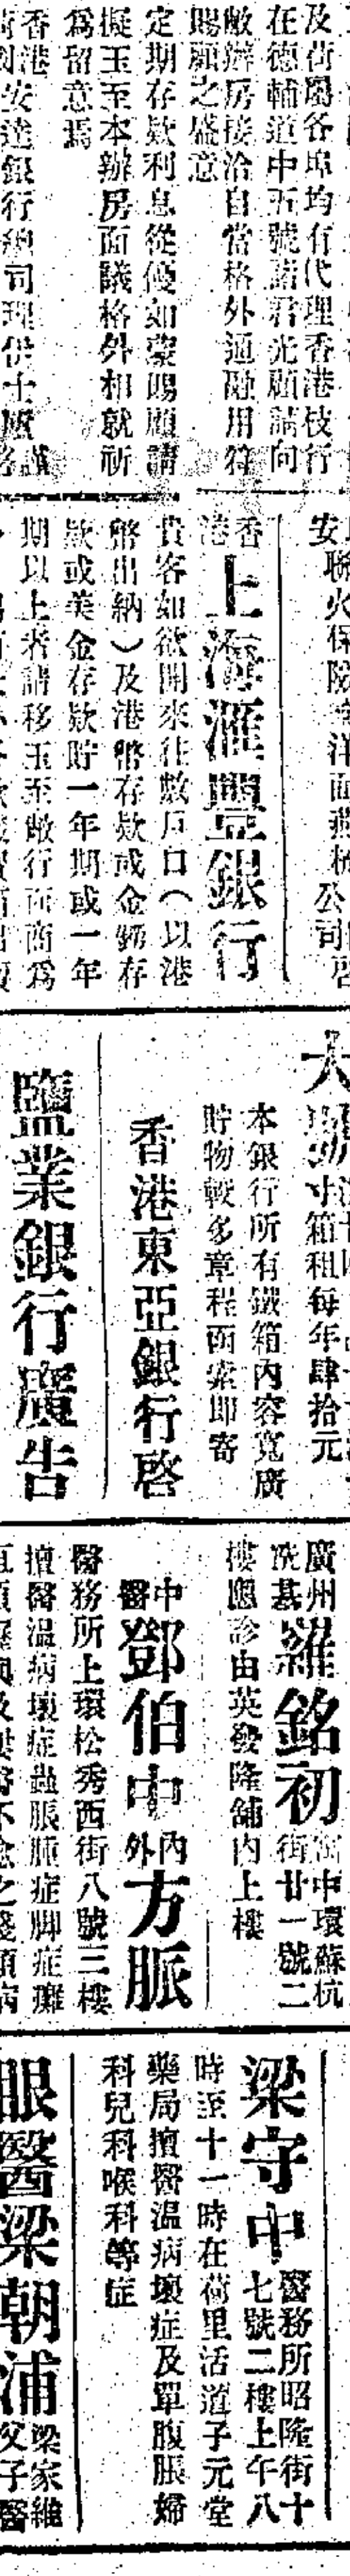 及荷屬各埠均有代理香港枝行
在德輔道中五號諸君光顧請向
敝辦房接洽自當格外通融用符
賜顧之盛意
定期存欵利息從優如蒙賜顧請
擬玉至本辦房面議格外相就祈
為留意焉
香港
安達銀行總司理伊士
安
聯火保險
洋面燕梳
公司啓
香港
上海滙豐銀行
貴客如欲開來往數戶口(以港
幣出納)及港幣存欵或金鎊存
欵或美金存欵貯一年期或一年
期以上者請移玉至敝行面商為
大
寸箱租每年肆拾元
本銀行所有鐵箱內容寬廣
貯物較多章程函索即寄
香港東亞銀行啓
鹽業銀行廣告
廣州
冼基
羅銘初
中環蘇杭
街廿一號二
樓應診由英發隆舖內上樓
中醫
鄧伯中
內外
方脈
醫務所上環松秀西街八號三樓
擅醫溫病壞症蟲脹腫症脚症癱
梁守中
醫務所昭隆街十
七號二樓上午八
時至十一時在荷里活道子元堂
藥局擅醫溫病壞症及單腹脹婦
科兒科喉科等症
眼醫梁朝浦
梁家維
父子醫